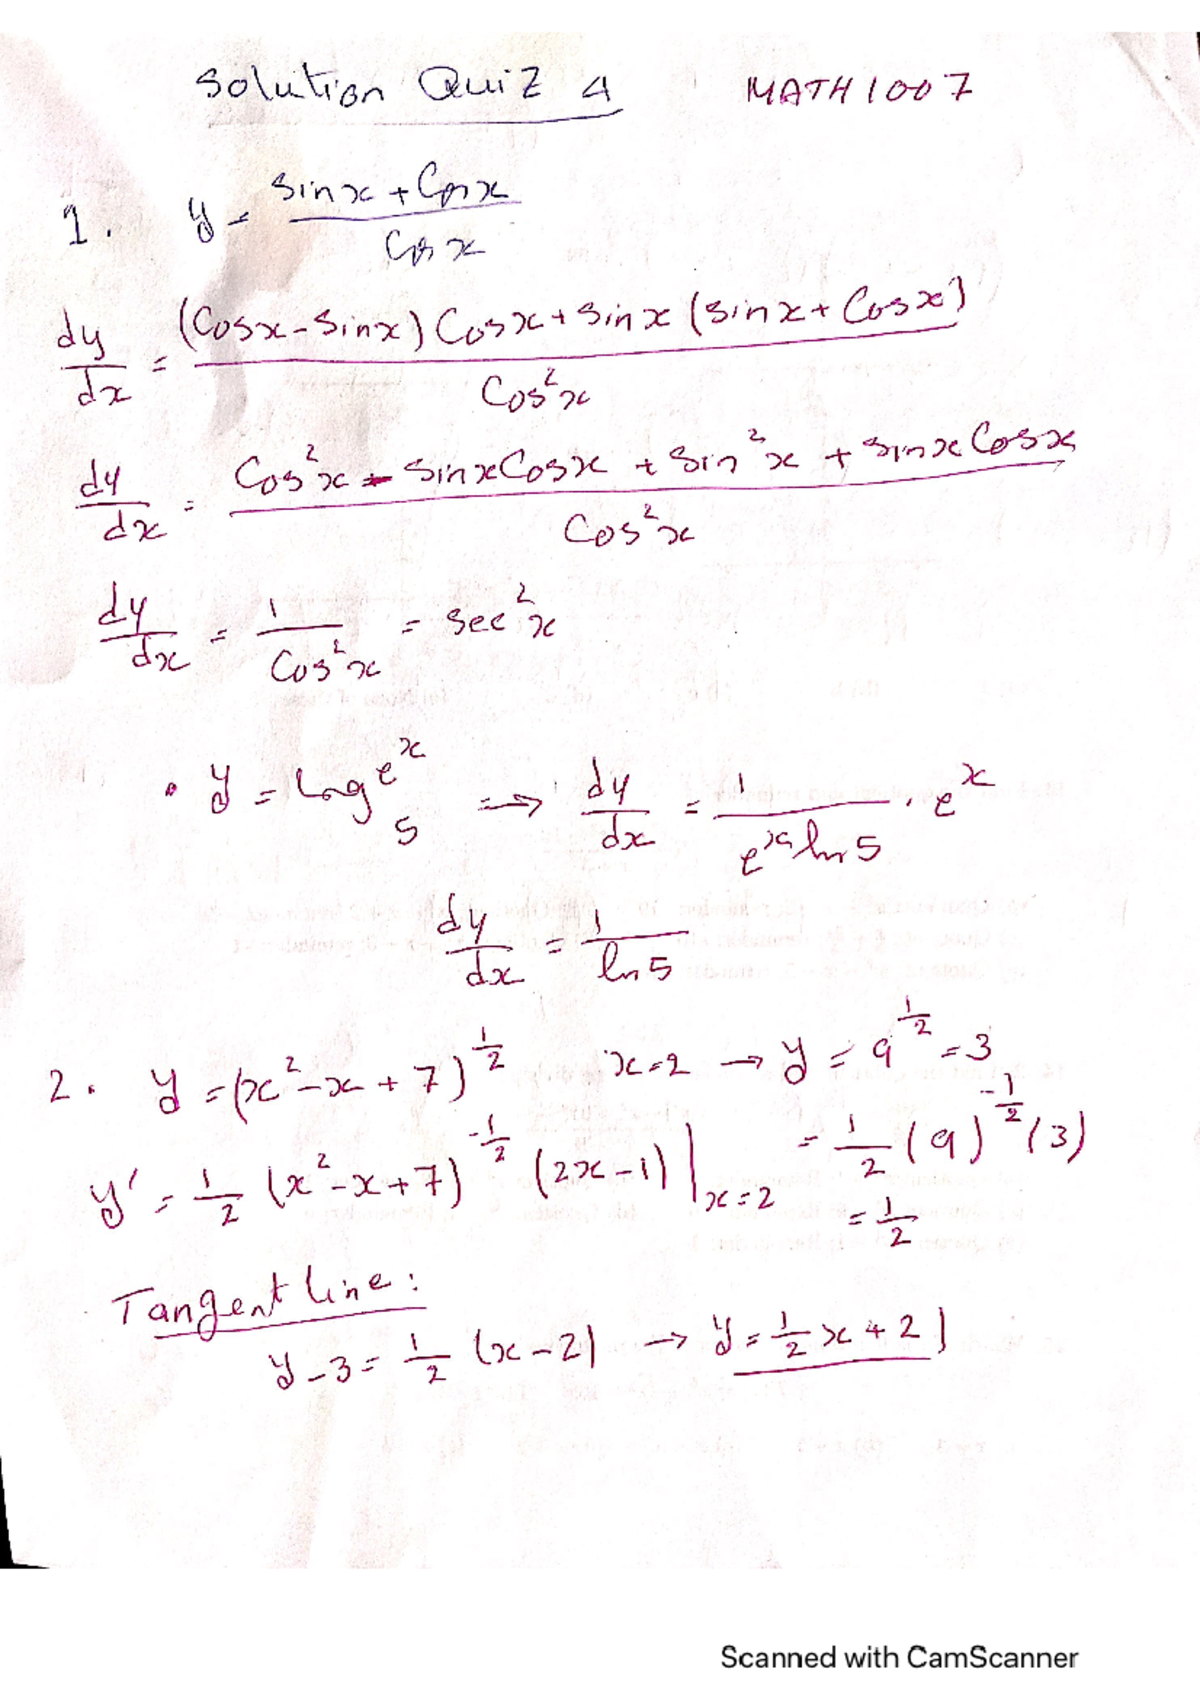 Solution Quiz 4 MATH 1007
1. y = (sin x + Cos x) / Cos x
dy/dx = ((Cos x - Sin x) Cos x + Sin x (Sin x + Cos x)) / Cos² x
dy/dx = (Cos² x - Sin x Cos x + Sin² x + Sin x Cos x) / Cos² x
dy/dx = 1 / Cos² x = Sec² x
• y = Log₅ eˣ ⇒ dy/dx = 1 / (eˣ ln 5) · eˣ
dy/dx = 1 / ln 5
2. y = (x² - x + 7)^(1/2) x = 2 → y = 9^(1/2) = 3
y' = 1/2 (x² - x + 7)^(-1/2) (2x - 1) |x = 2 = 1/2 (9)^(-1/2) (3)
= 1/2
Tangent line:
y - 3 = 1/2 (x - 2) → y = 1/2 x + 2
Scanned with CamScanner